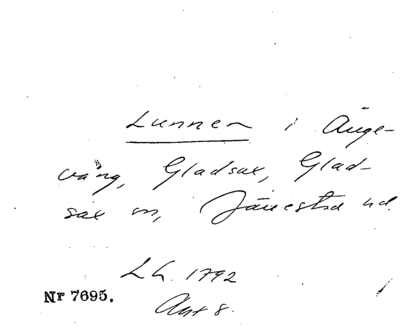 Lunnen i Änge-
vång, Gladsax, Glad-
sax sn, Järrestad hd.
L.h. 1792
Akt 8.
Nr 7695.